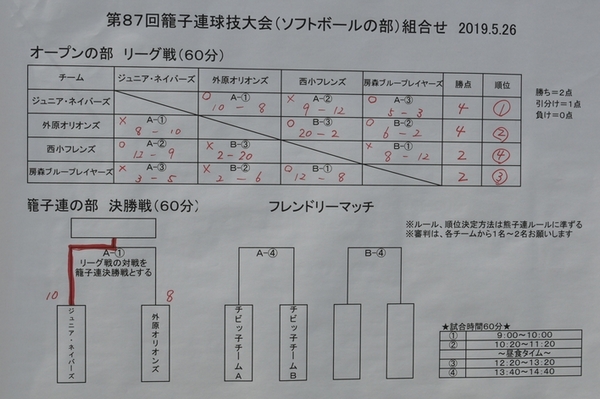 第87回籠子連球技大会(ソフトボールの部)組合せ 2019.5.26
オープンの部 リーグ戦(60分)
チーム ジュニア・ネイバーズ 外原オリオンズ 西小フレンズ 房森ブループレイヤーズ 勝点 順位
ジュニア・ネイバーズ ○ A-① 10 - 8 × A-② 9 - 12 ○ A-③ 5 - 3 4 ①
外原オリオンズ × A-① 8 - 10 ○ B-③ 20 - 2 ○ B-② 6 - 2 4 ②
西小フレンズ ○ A-② 12 - 9 × B-③ 2 - 20 × B-① 8 - 12 2 ④
房森ブループレイヤーズ × A-③ 3 - 5 × B-② 2 - 6 ○ B-① 12 - 8 2 ③
勝ち=2点
引分け=1点
負け=0点
籠子連の部 決勝戦(60分)
フレンドリーマッチ
※ルール、順位決定方法は熊子連ルールに準ずる
※審判は、各チームから1名~2名お願いします
A-①
リーグ戦の対戦を
籠子連決勝戦とする
10
8
ジュニア・ネイバーズ
外原オリオンズ
A-④
チビッ子チームA
チビッ子チームB
B-④
★試合時間60分★
① 9:00~10:00
② 10:20~11:20
~昼食タイム~
③ 12:20~13:20
④ 13:40~14:40